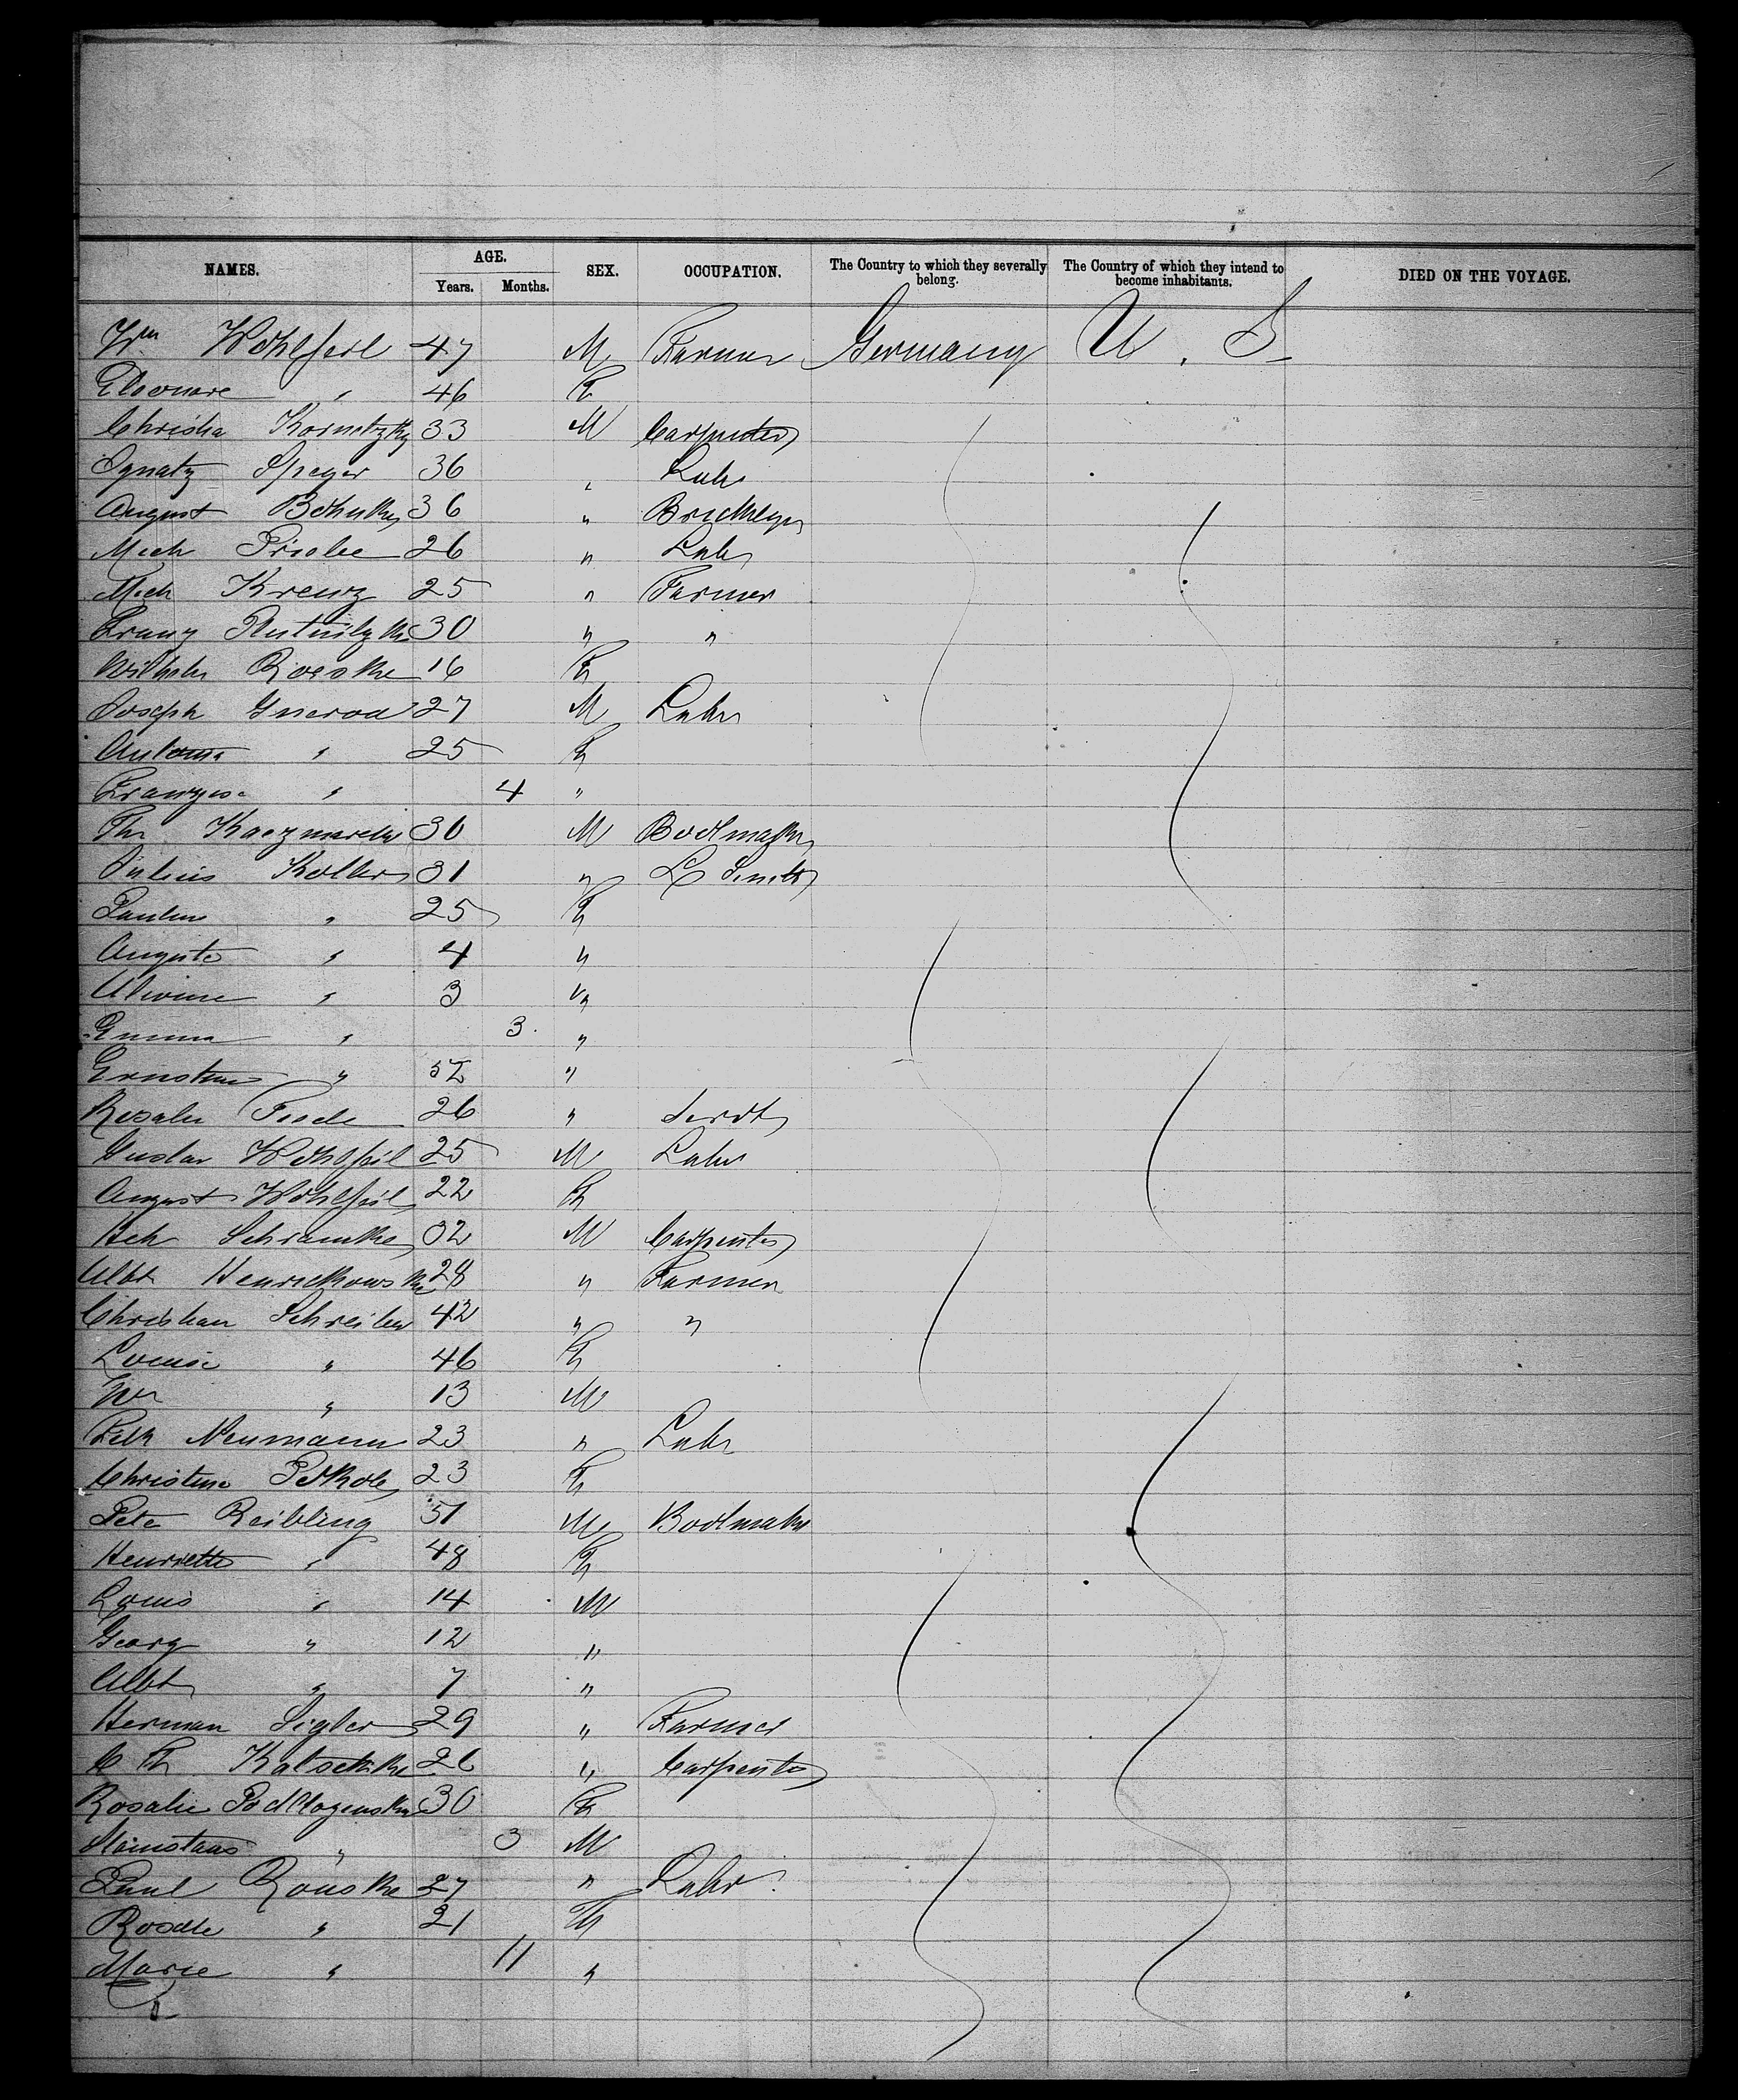 NAMES. AGE. SEX. OCCUPATION. The Country to which they severally belong. The Country of which they intend to become inhabitants. DIED ON THE VOYAGE.
Years. Months.
Wm Wohlfeil 47 M Farmer Germany U. S.
Eleonore " 46 F
Christia Kornetzky 33 M Carpenter
Ignatz Speyer 36 " Labr
August Bohnke 36 " Bricklayer
Mich Priebe 26 " Labr
Mich Kreuz 25 " Farmer
Franz 30 " "
Wilhelm Roeske 16 F
Joseph Gnerod 27 M Labr
Antonia " 25 F
Franzisc " 4 "
Thr Kaczmarek 30 M Bootmaker
Julius Koller 31 " L Smith
Pauline " 25 F
Auguste " 4 "
Alwine " 3 "
Emma " 3 "
Ernstine " 52 "
Rosalie 26 " Servt
Gustav Wohlfeil 25 M Labr
August Wohlfeil 22 F
Hch Schramke 32 M Carpenter
Albt Henrichowski 28 " Farmer
Christian Schreiber 42 " "
Louise " 46 F
Wm " 13 M
Neumann 23 " Labr
Christine 23 F
Pete Reibling 51 M Bootmaker
Henriette " 48 F
Louis " 14 M
Georg " 12 "
Albt " 7 "
Herman Sigler 29 " Farmer
C Fr Katschke 26 " Carpenter
Rosalie 30 F
" 3 M
Paul Rouske 27 " Labr
Rosalie " 21 F
Marie " 11 "